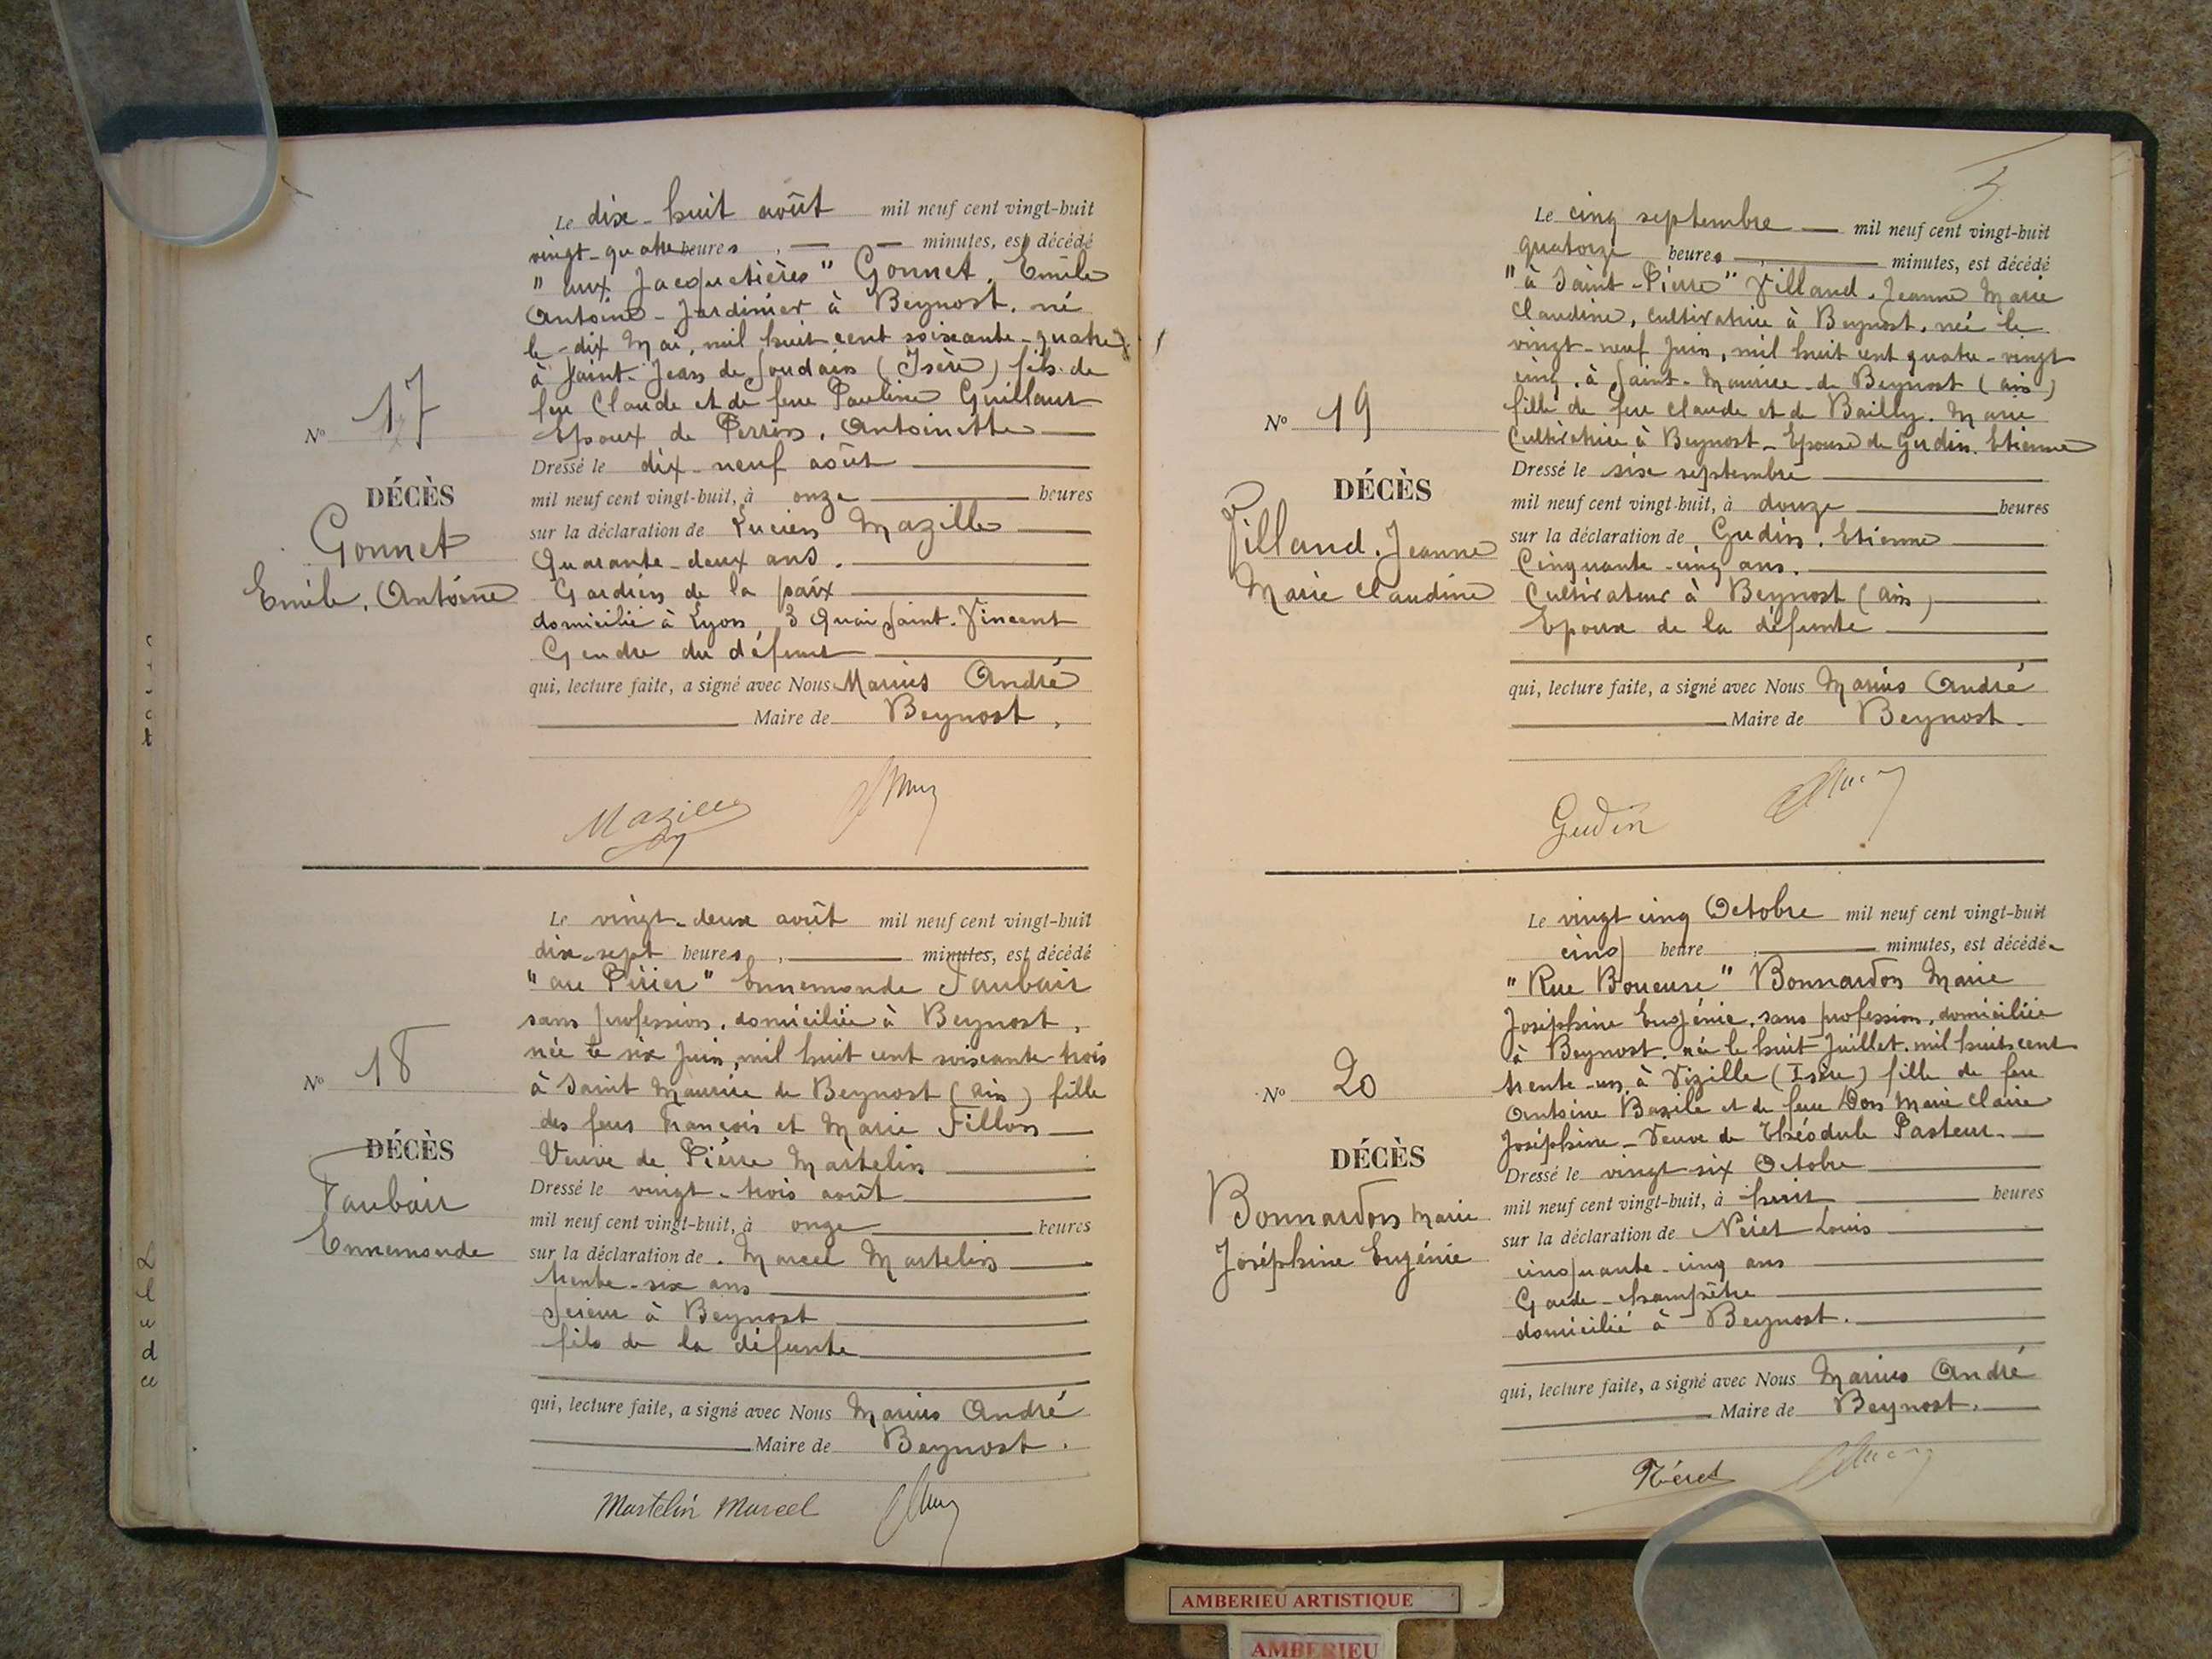 Le dix-huit août mil neuf cent vingt-huit
vingt-quatre heures, — — minutes, est décédé
"aux Jacquetières" Gonnet, Emile
Antoine - Jardinier à Beynost. né
le dix Mai, mil huit cent soixante-quatre
à Saint-Jean de Soudain (Isère) fils de
feu Claude et de feue Pauline Guillaut
Epoux de Perrin, Antoinette
Nº 17
Dressé le dix-neuf août
DÉCÈS
mil neuf cent vingt-huit, à onze heures
Gonnet
Emile, Antoine
sur la déclaration de Lucien Mazille
Quarante-deux ans.
Gardien de la paix
domicilié à Lyon 3 Quai Saint-Vincent
Gendre du défunt
qui, lecture faite, a signé avec Nous Marius André
Maire de Beynost,
Mazille
Le vingt-deux août mil neuf cent vingt-huit
dix-sept heures, minutes, est décédé
"au Périer" Ennemonde Taubair
sans profession, domiciliée à Beynost,
née le six Juin, mil huit cent soixante-trois
à Saint Maurice de Beynost (Ain) fille
des feus François et Marie Fillon
Veuve de Pierre Martelin
Nº 18
Dressé le vingt-trois août
DÉCÈS
mil neuf cent vingt-huit, à onze heures
Taubair
Ennemonde
sur la déclaration de Marcel Martelin
trente-six ans
Scieur à Beynost
fils de la défunte
qui, lecture faite, a signé avec Nous Marius André
Maire de Beynost.
Martelin Marcel
Le cinq septembre mil neuf cent vingt-huit
quatorze heures minutes, est décédé
"à Saint-Pierre" Villand. Jeanne Marie
Claudine, cultivatrice à Beynost, née le
vingt-neuf Juin, mil huit cent quatre-vingt
cinq, à Saint-Maurice-de Beynost (Ain)
fille de feu Claude et de Bailly. Marie
Cultivatrice à Beynost - Epouse de Gudin. Etienne
Nº 19
Dressé le six septembre
DÉCÈS
mil neuf cent vingt-huit, à douze heures
Villand. Jeanne
Marie Claudine
sur la déclaration de Gudin. Etienne
Cinquante-cinq ans.
Cultivateur à Beynost (Ain)
Epoux de la défunte
qui, lecture faite, a signé avec Nous Marius André
Maire de Beynost.
Gudin
Le vingt cinq Octobre mil neuf cent vingt-huit
cinq heure minutes, est décédée
"Rue Boueuse" Bonnardon Marie
Joséphine Eugénie, sans profession, domiciliée
à Beynost. née le huit Juillet. mil huit cent
trente-un à Vizille (Isère) fille de feu
Antoine Bazile et de feue Don Marie Claire
Joséphine - Veuve de Théodule Pasteur.
Nº 20
Dressé le vingt-six Octobre
DÉCÈS
mil neuf cent vingt-huit, à huit heures
Bonnardon Marie
Joséphine Eugénie
sur la déclaration de Néret Louis
cinquante-cinq ans
Garde-champêtre
domicilié à Beynost.
qui, lecture faite, a signé avec Nous Marius André
Maire de Beynost.
Néret
AMBERIEU ARTISTIQUE
AMBERIEU